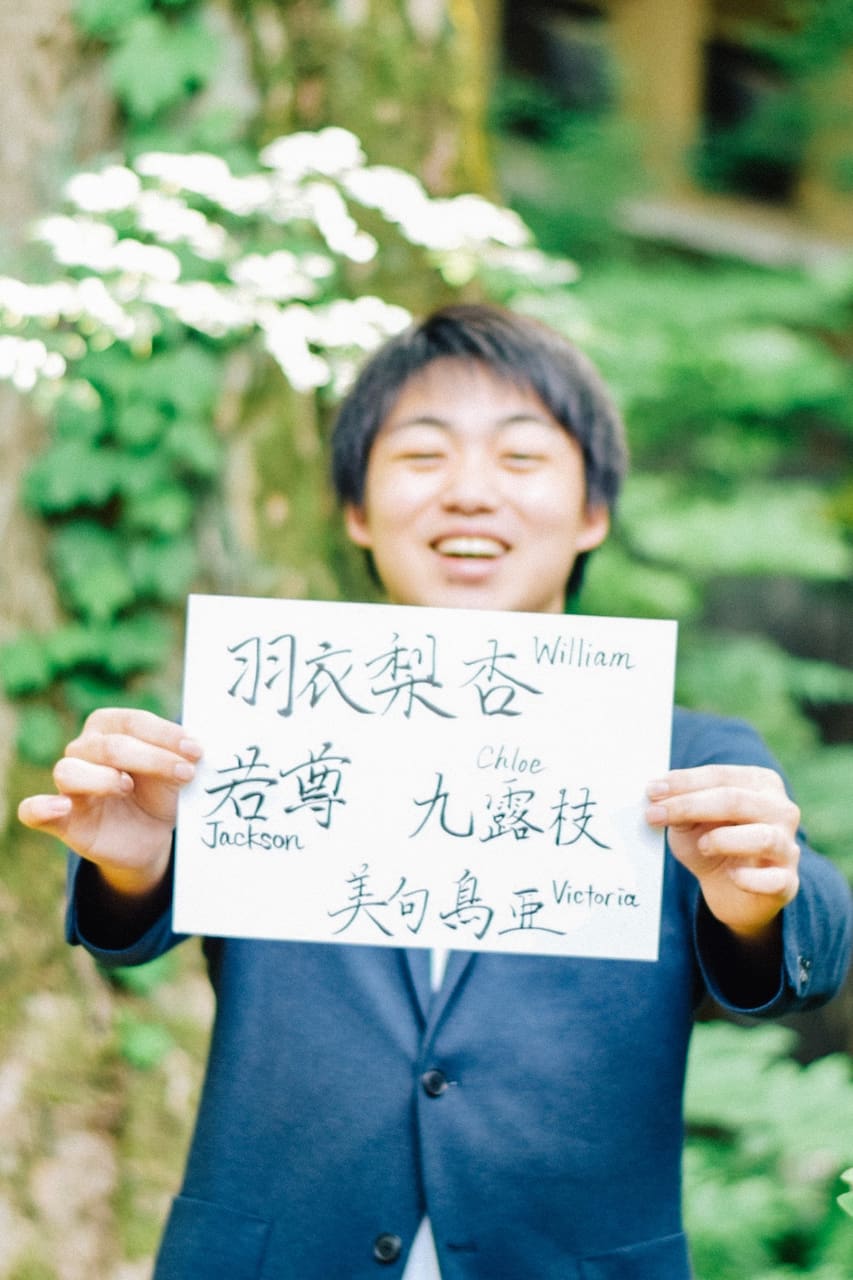 羽衣梨杏 William
若尊
Jackson
Chloe
九露枝
美句鳥亜 Victoria